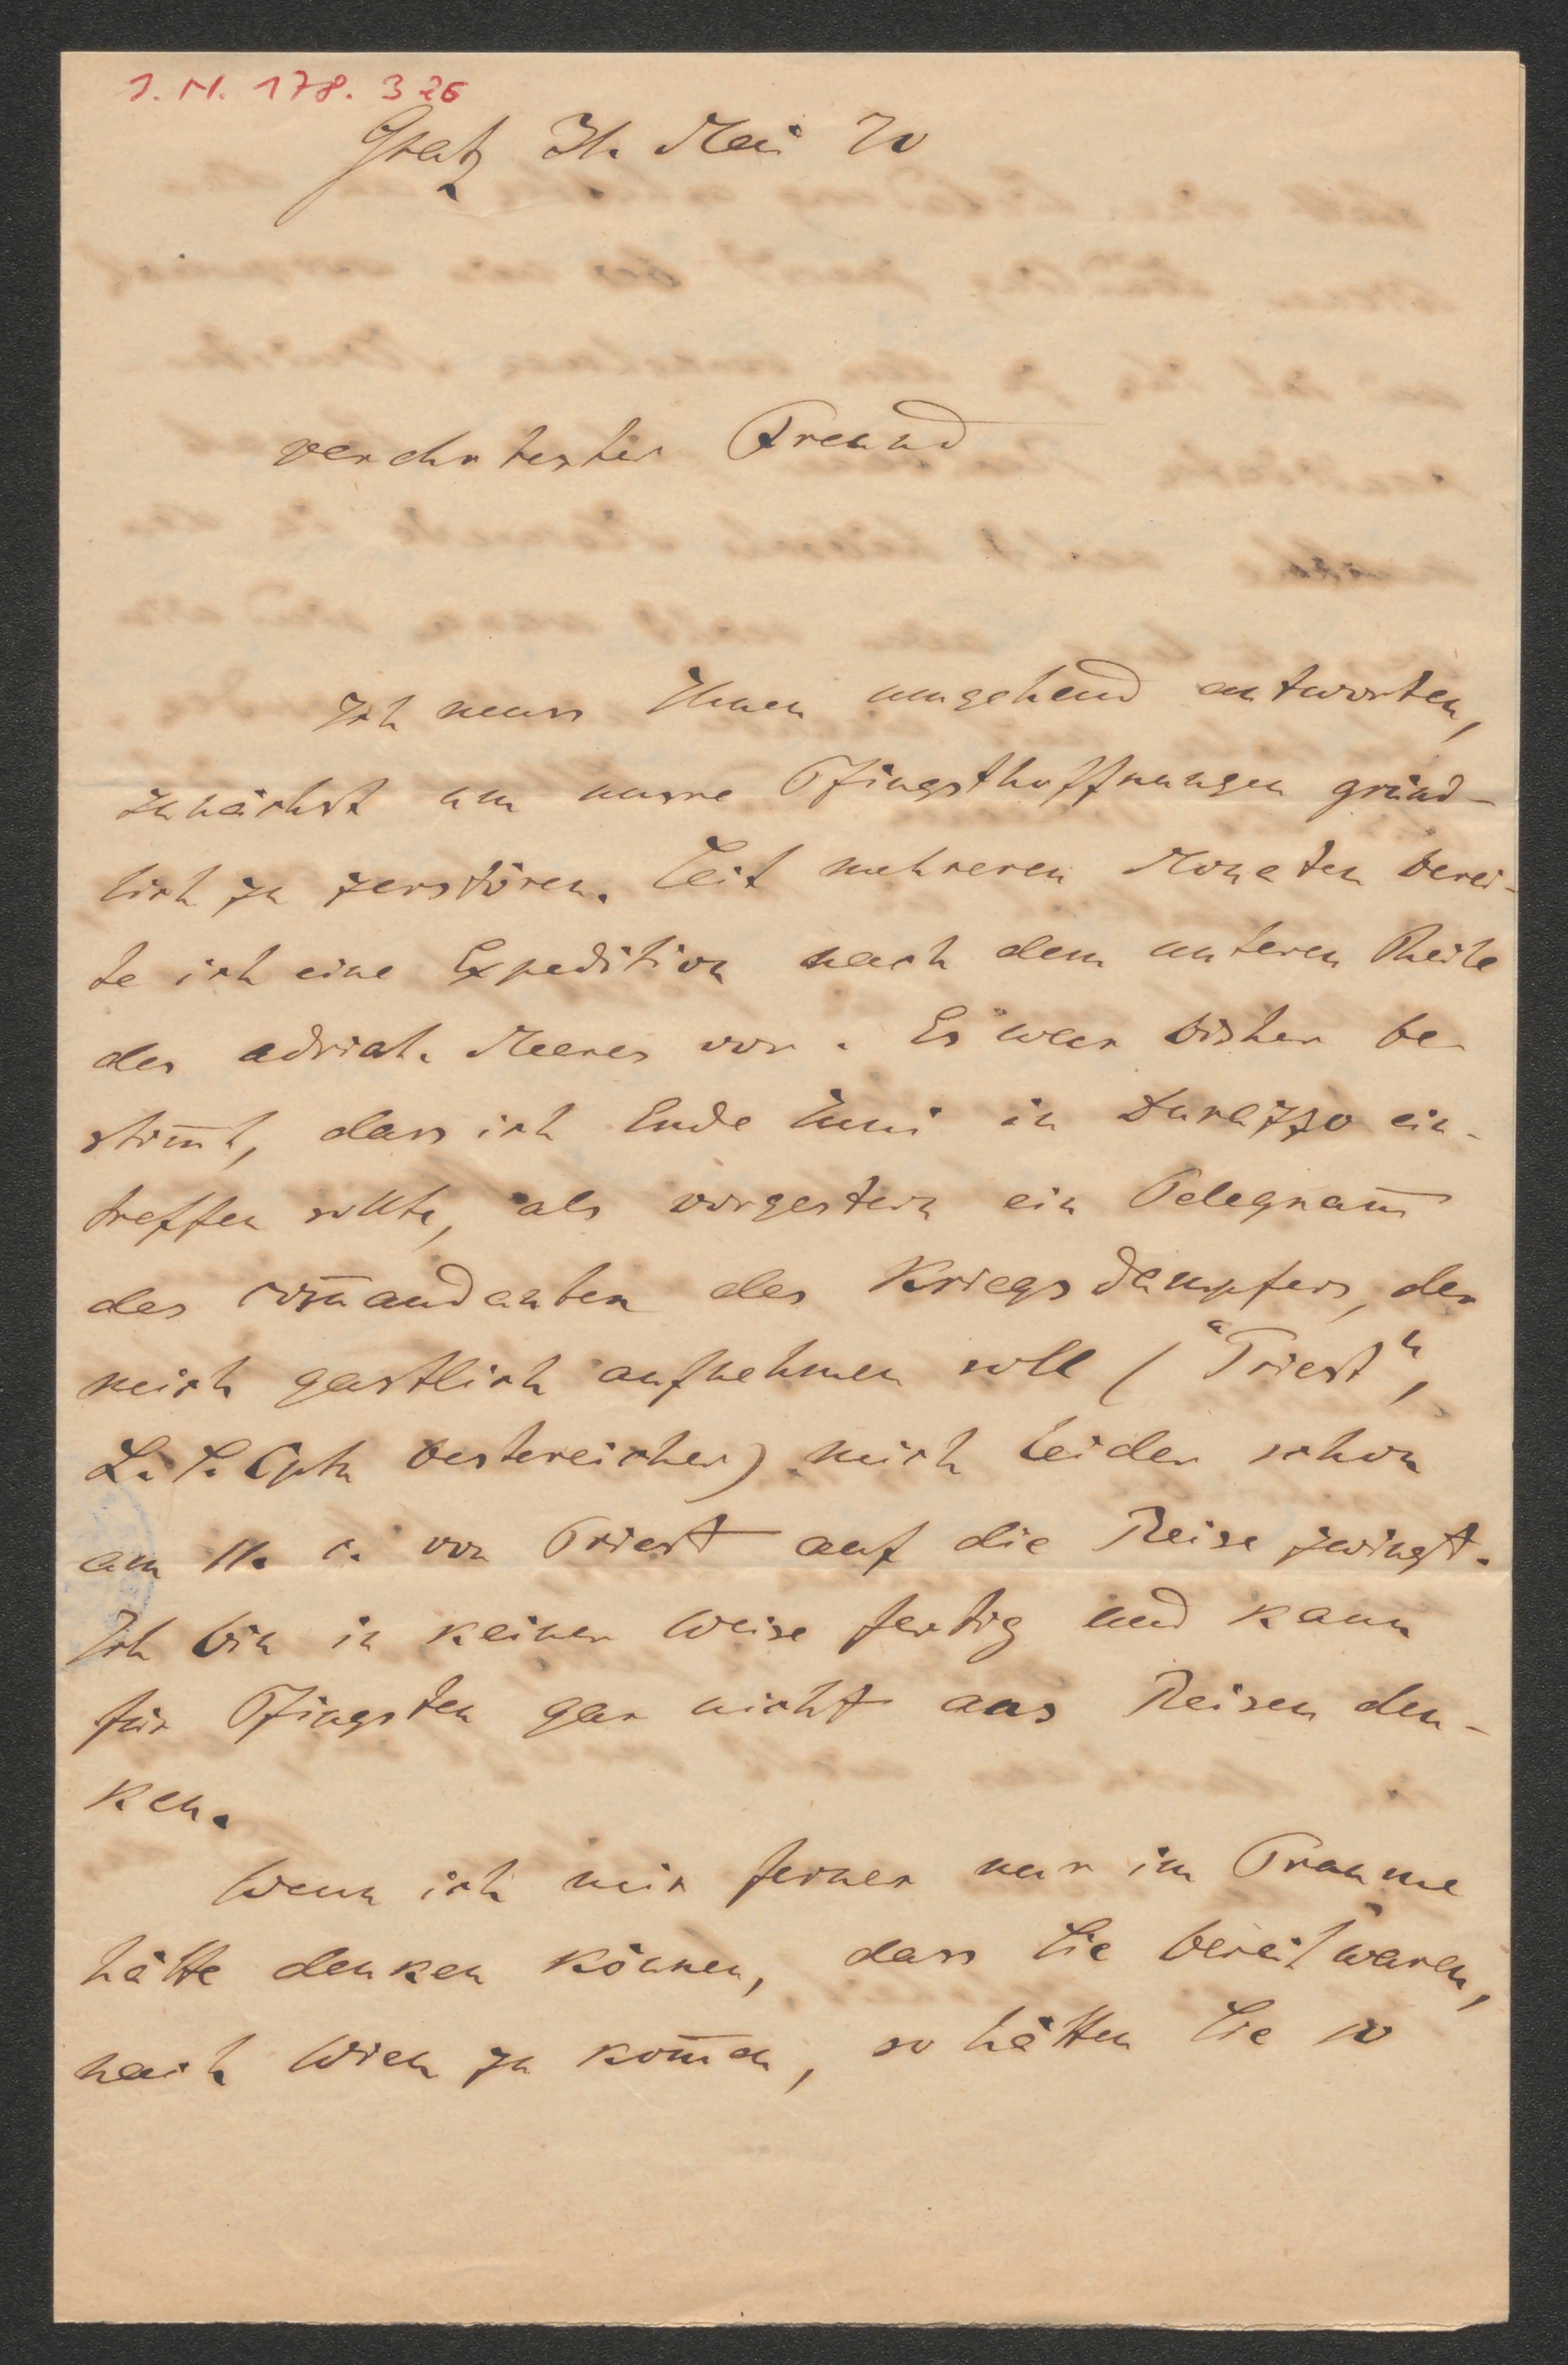 I. N. 178.326
Gratz 31. Mai 70
verehrtester Freund
Ich muss Ihnen umgehend antworten,
zunächst um unsre Pfingsthoffnungen gründ-
lich zu zerstören. Seit mehreren Monaten berei-
te ich eine Expedition nach dem unteren Theile
des adriat. Meeres vor. Es war bisher be-
stim̅t, dass ich Ende Juni in Durazzo ein-
treffen sollte, als vorgestern ein Telegram̅
des Com̅andanten des Kriegsdampfers, der
mich gastlich aufnehmen soll ("Triest",
L. S. Cptn Oestereicher) mich leider schon
am 11. c. von Triest auf die Reise zwingt.
Ich bin in keiner Weise fertig und kann
für Pfingsten gar nicht ans Reisen den-
ken.
Wenn ich mir ferner nur im Traume
hätte denken können, dass Sie bereit wären,
nach Wien zu kom̅en, so hätten Sie so